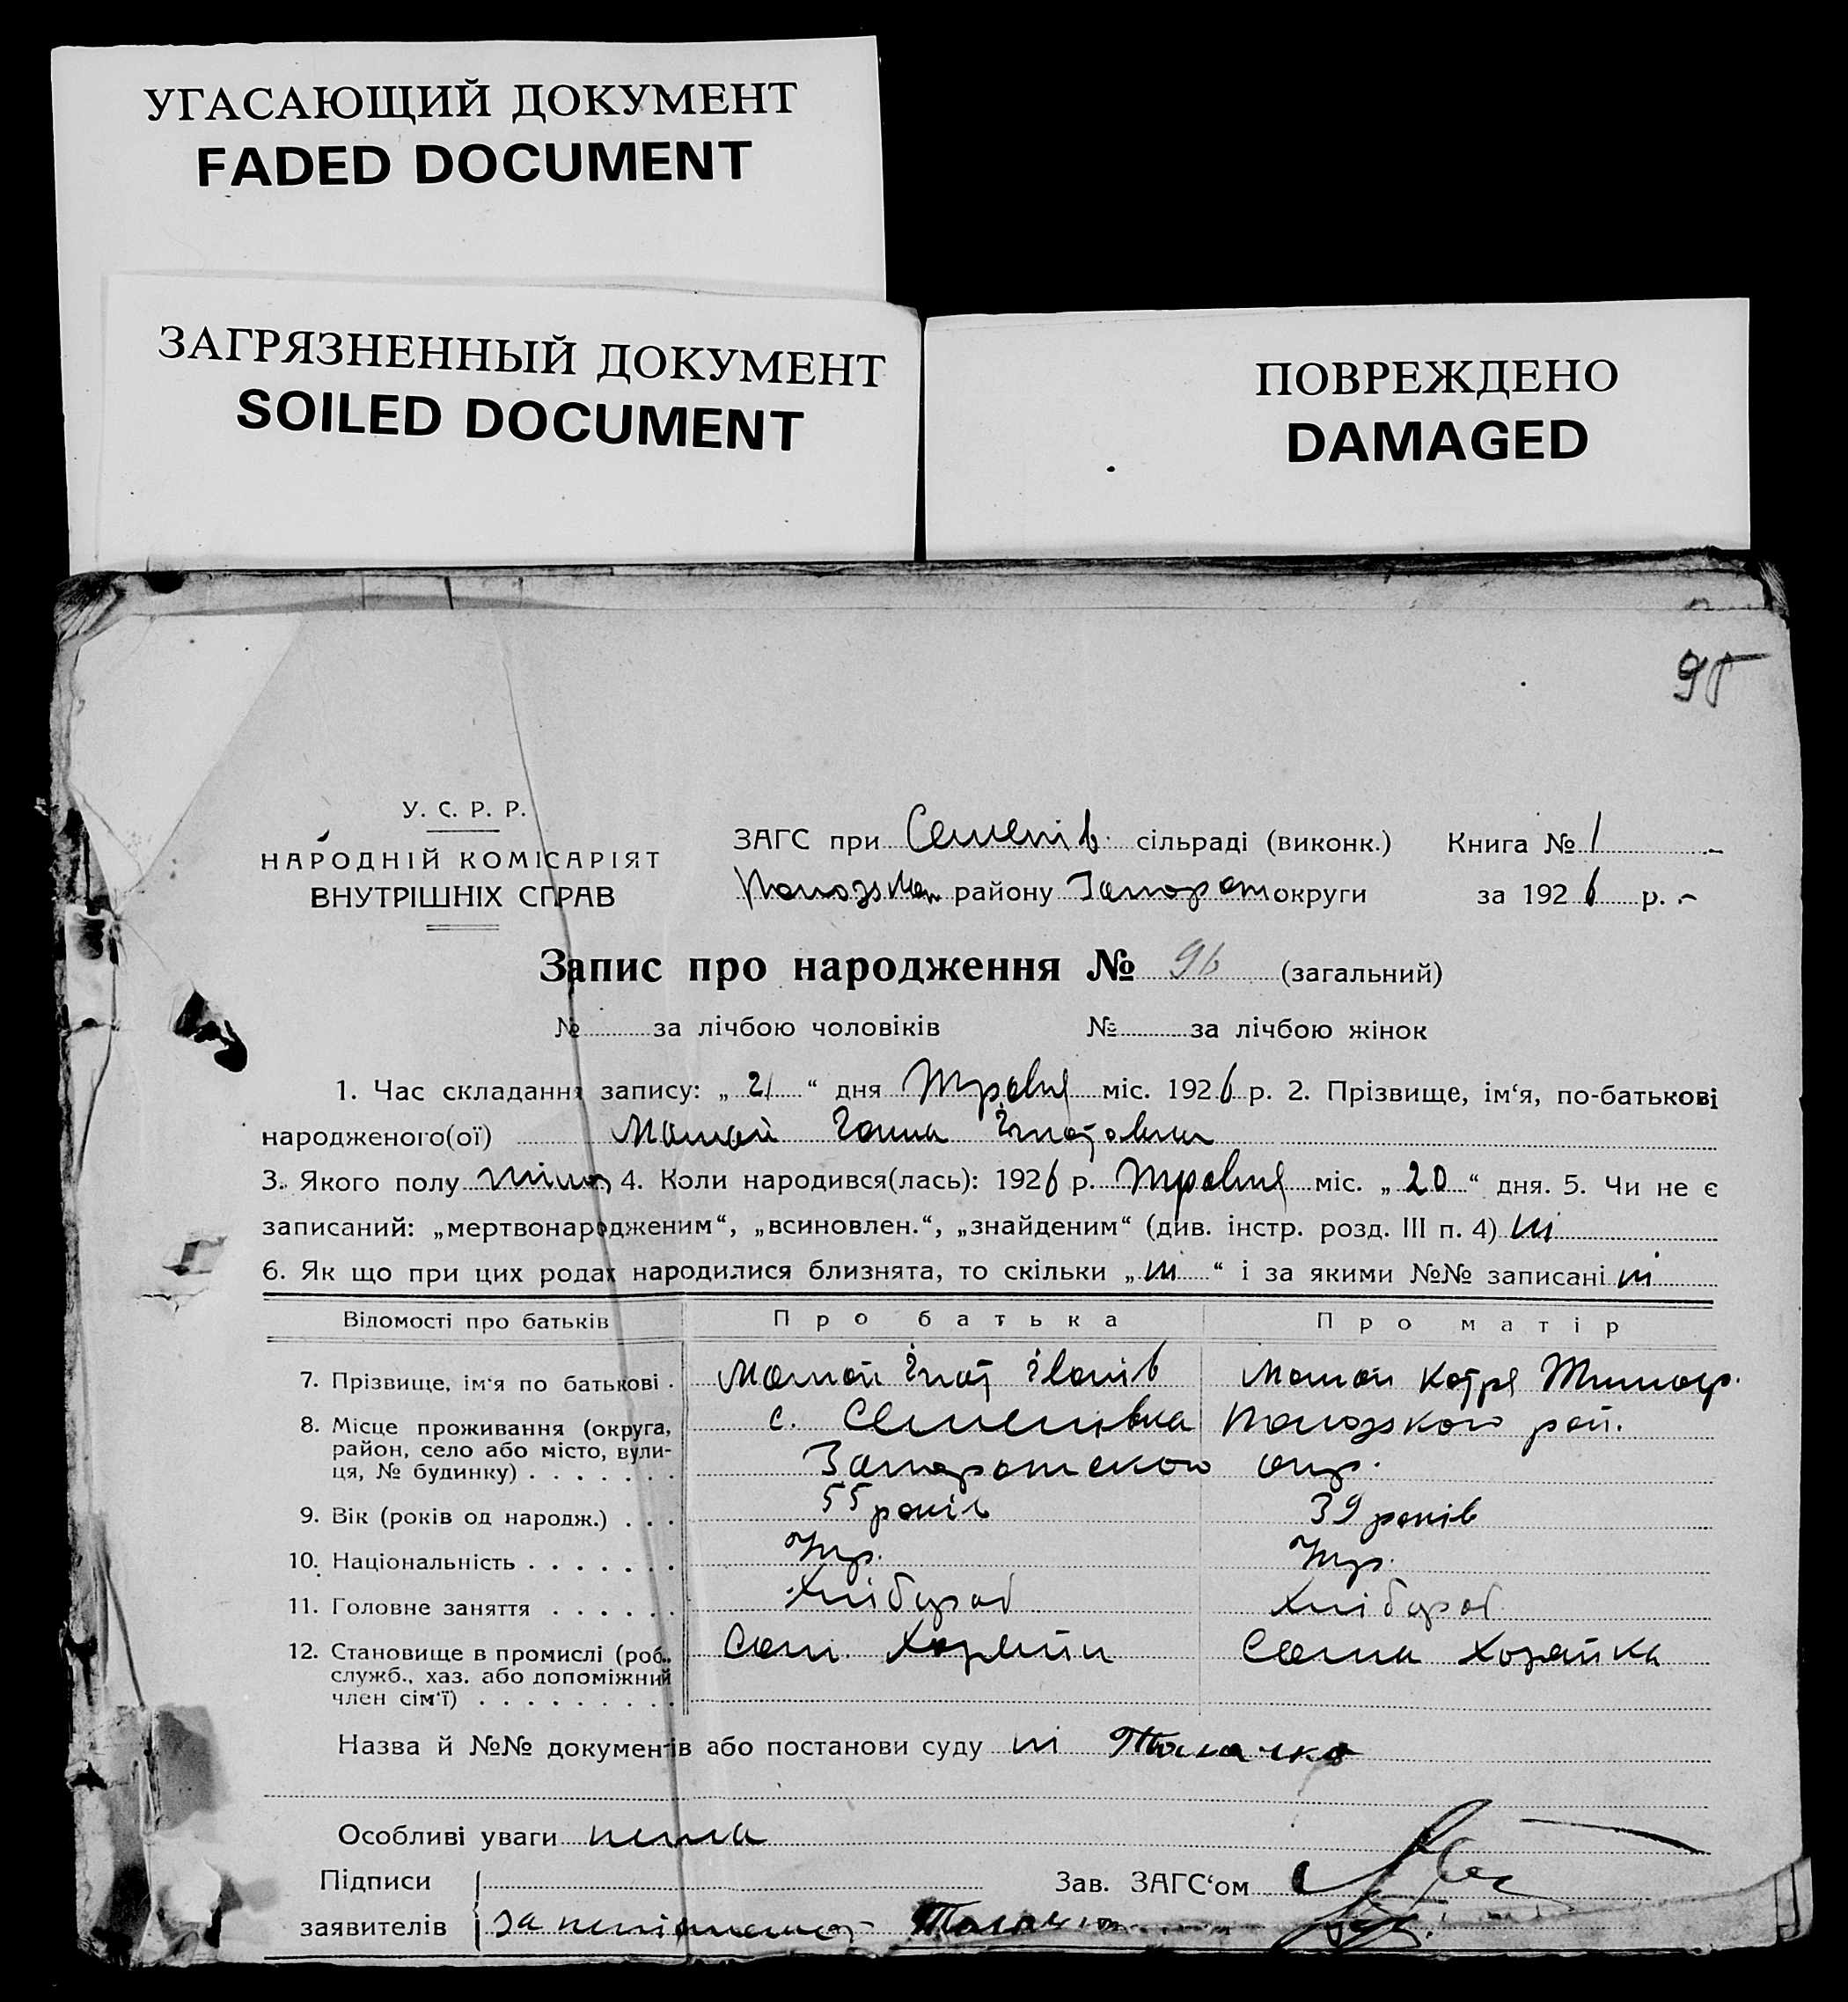 УГАСАЮЩИЙ ДОКУМЕНТ
FADED DOCUMENT
ЗАГРЯЗНЕННЫЙ ДОКУМЕНТ
SOILED DOCUMENT
ПОВРЕЖДЕНО
DAMAGED
95
У. С. Р. Р.
НАРОДНІЙ КОМІСАРІЯТ
ВНУТРІШНІХ СПРАВ
ЗАГС при Семенів. сільраді (виконк.) Книга № 1
району Запорож округи за 1926 р.
Запис про народження № 96 (загальний)
№ за лічбою чоловіків № за лічбою жінок
1. Час складання запису: „ 21 “ дня Травня міс. 1926 р. 2. Прізвище, ім‘я, по-батькові
народженого(ої) Ганна Ігнатовна
3. Якого полу жіноч 4. Коли народився(лась): 1926 р. Травня міс. „ 20 “ дня. 5. Чи не є
записаний: „мертвонародженим“, „всиновлен.“, „знайденим“ (див. інстр. розд. III п. 4) ні
6. Як що при цих родах народилися близнята, то скільки „ ні “ і за якими №№ записані ні
Відомості про батьків Про батька Про матір
7. Прізвище, ім‘я по батькові . Ігнат Іванів Котря
8. Місце проживання (округа, с. Семенівка Пологського рай.
район, село або місто, вули-
ця, № будинку) . . . . . . . Запорожською окр.
9. Вік (років од народж.) . . . 55 років 39 років
10. Національність . . . . . . . Укр. Укр.
11. Головне заняття . . . . . . Хлібороб Хлібороб
12. Становище в промислі (роб., Сам. Хозяїн Сама Хозяйка
служб., хаз. або допоміжний
член сім‘ї) . . . . . . . . .
Назва й №№ документів або постанови суду ні
Особливі уваги нема
Підписи Зав. ЗАГС‘ом
заявителів за